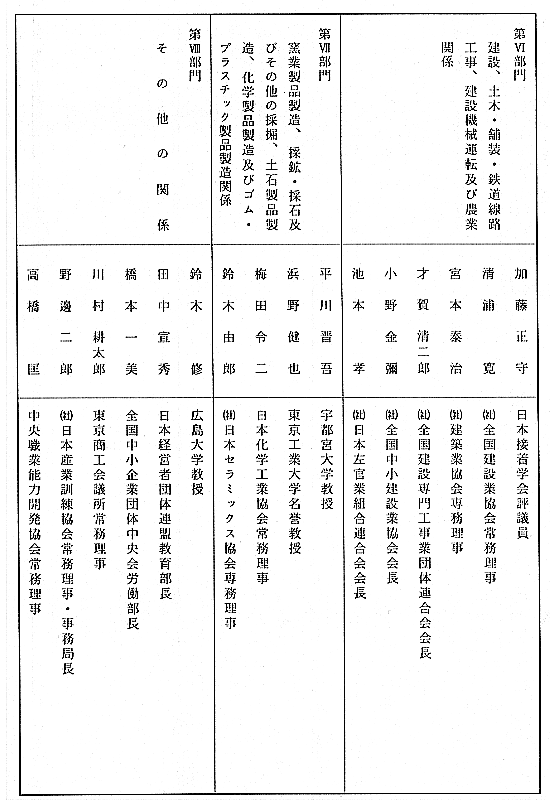 第Ⅵ部門
建設、土木・舗装・鉄道線路
工事、建設機械運転及び農業
関係
加藤正守 日本接着学会評議員
清浦寛 ㈳全国建設業協会常務理事
宮本泰治 ㈳建築業協会専務理事
才賀清二郎 ㈳全国建設専門工事業団体連合会会長
小野金彌 ㈳全国中小建設業協会会長
池本孝 ㈳日本左官業組合連合会会長
第Ⅶ部門
窯業製品製造、採鉱・採石及
びその他の採掘、土石製品製
造、化学製品製造及びゴム・
プラスチック製品製造関係
平川晋吾 宇都宮大学教授
浜野健也 東京工業大学名誉教授
梅田令二 日本化学工業協会常務理事
鈴木由郎 ㈳日本セラミックス協会専務理事
第Ⅷ部門
その他の関係
鈴木修 広島大学教授
田中宣秀 日本経営者団体連盟教育部長
橋本一美 全国中小企業団体中央会労働部長
川村耕太郎 東京商工会議所常務理事
野邊二郎 ㈳日本産業訓練協会常務理事・事務局長
高橋匡 中央職業能力開発協会常務理事